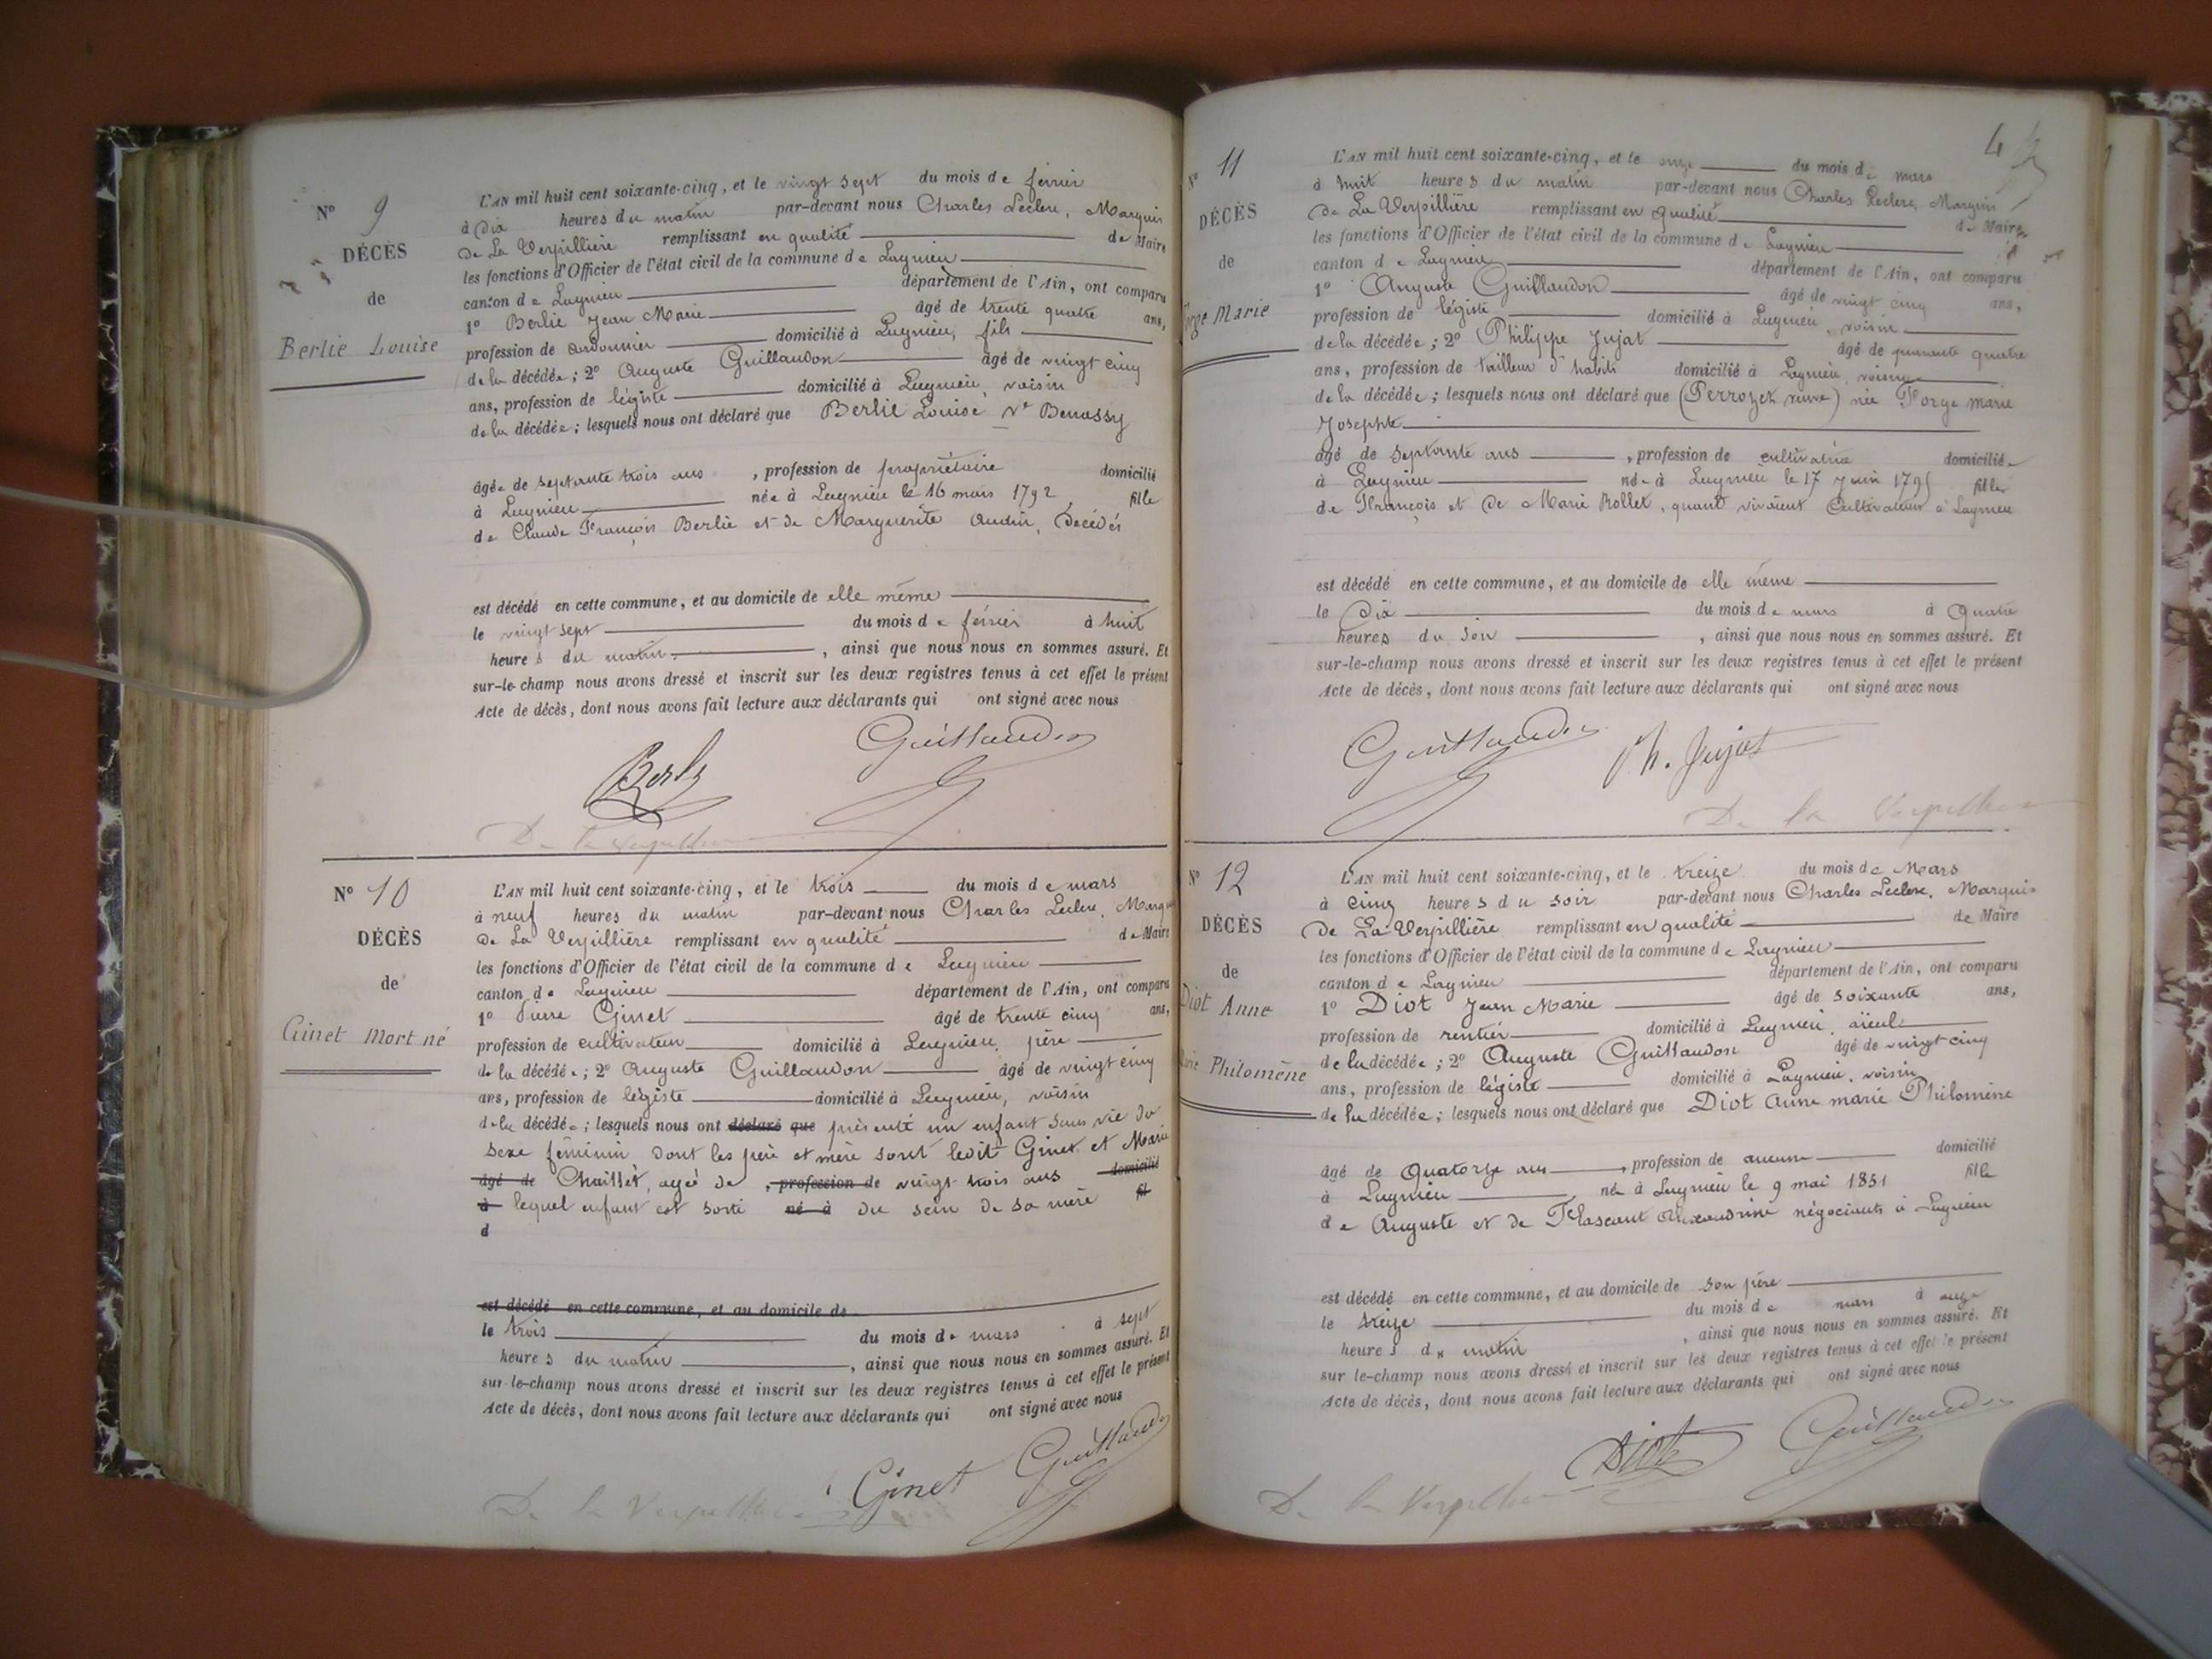 N° 9
DÉCÈS
de
Berlie Louise
L'AN mil huit cent soixante-cinq, et le vingt sept du mois de février
à Dix heures du matin par-devant nous Charles Leclerc, Marquis
de La Verpillière remplissant en qualité de Maire
les fonctions d'Officier de l'état civil de la commune de Lagnieu
canton de Lagnieu département de l'Ain, ont comparu
1° Berlie Jean Marie âgé de trente quatre ans,
profession de cordonnier domicilié à Lagnieu, fils
de la décédée; 2° Auguste Guillaudon âgé de vingt cinq
ans, profession de légiste domicilié à Lagnieu, voisin
de la décédée; lesquels nous ont déclaré que Berlie Louise Ve Benassy
âgée de septante trois ans, profession de propriétaire domicilié
à Lagnieu née à Lagnieu le 16 mars 1792 fille
de Claude François Berlie et de Marguerite Audin, décédés
est décédé en cette commune, et au domicile de elle même
le vingt sept du mois de février à huit
heures du matin, ainsi que nous nous en sommes assuré. Et
sur-le-champ nous avons dressé et inscrit sur les deux registres tenus à cet effet le présent
Acte de décès, dont nous avons fait lecture aux déclarants qui ont signé avec nous
Berlie Guillaudon
De la Verpillière
N° 10
DÉCÈS
de
Ginet Mort né
L'AN mil huit cent soixante-cinq, et le trois du mois de mars
à neuf heures du matin par-devant nous Charles Leclerc, Marq
de La Verpillière remplissant en qualité de Maire
les fonctions d'Officier de l'état civil de la commune de Lagnieu
canton de Lagnieu département de l'Ain, ont comparu
1° Pierre Ginet âgé de trente cinq ans,
profession de cultivateur domicilié à Lagnieu, père
de la décédée; 2° Auguste Guillaudon âgé de vingt cinq
ans, profession de légiste domicilié à Lagnieu, voisin
de la décédée; lesquels nous ont déclaré que présenté un enfant sans vie du
sexe féminin dont les père et mère sont ledit Ginet et Marie
âgé de Chaillet, agée de, profession de vingt trois ans domicilié
à lequel enfant est sorti né à du sein de sa mère fil
d
est décédé en cette commune, et au domicile de
le trois du mois de mars à sept
heures du matin, ainsi que nous nous en sommes assuré. Et
sur-le-champ nous avons dressé et inscrit sur les deux registres tenus à cet effet le présent
Acte de décès, dont nous avons fait lecture aux déclarants qui ont signé avec nous
De la Verpillière Ginet Guillaudon
4
N° 11
DÉCÈS
de
Forge Marie
L'AN mil huit cent soixante-cinq, et le onze du mois de mars
à huit heures du matin par-devant nous Charles Leclerc, Marquis
de La Verpillière remplissant en qualité de Maire
les fonctions d'Officier de l'état civil de la commune de Lagnieu
canton de Lagnieu département de l'Ain, ont comparu
1° Auguste Guillaudon âgé de vingt cinq ans,
profession de légiste domicilié à Lagnieu, voisin
de la décédée; 2° Philippe Jujat âgé de quarante quatre
ans, profession de tailleur d'habits domicilié à Lagnieu, voisin
de la décédée; lesquels nous ont déclaré que (Perrozet veuve) née Forge marie
Josephte
âgé de septante ans, profession de cultivatrice domiciliée
à Lagnieu née à Lagnieu le 17 juin 1795 fille
de François et de Marie Rollet, quand vivaient Cultivateurs à Lagnieu
est décédé en cette commune, et au domicile de elle même
le dix du mois de mars à Quatre
heures du soir, ainsi que nous nous en sommes assuré. Et
sur-le-champ nous avons dressé et inscrit sur les deux registres tenus à cet effet le présent
Acte de décès, dont nous avons fait lecture aux déclarants qui ont signé avec nous
Guillaudon Ph. Jujat
De la Verpillière
N° 12
DÉCÈS
de
Diot Anne
Marie Philomène
L'AN mil huit cent soixante-cinq, et le treize du mois de Mars
à cinq heures du soir par-devant nous Charles Leclerc, Marquis
de La Verpillière remplissant en qualité de Maire
les fonctions d'Officier de l'état civil de la commune de Lagnieu
canton de Lagnieu département de l'Ain, ont comparu
1° Diot Jean Marie âgé de soixante ans,
profession de rentier domicilié à Lagnieu, aïeul
de la décédée; 2° Auguste Guillaudon âgé de vingt cinq
ans, profession de légiste domicilié à Lagnieu, voisin
de la décédée; lesquels nous ont déclaré que Diot Anne marie Philomène
âgé de Quatorze ans, profession de aucune domicilié
à Lagnieu, née à Lagnieu le 9 mai 1851 fille
de Auguste et de Alexandrine négociants à Lagnieu
est décédé en cette commune, et au domicile de son père
le treize du mois de mars à onze
heures du matin, ainsi que nous nous en sommes assuré. Et
sur le-champ nous avons dressé et inscrit sur les deux registres tenus à cet effet le présent
Acte de décès, dont nous avons fait lecture aux déclarants qui ont signé avec nous
De la Verpillière Diot Guillaudon